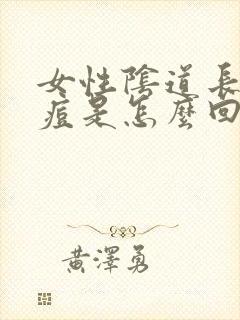 女性陰道長
痘是怎麼回
黃澤勇